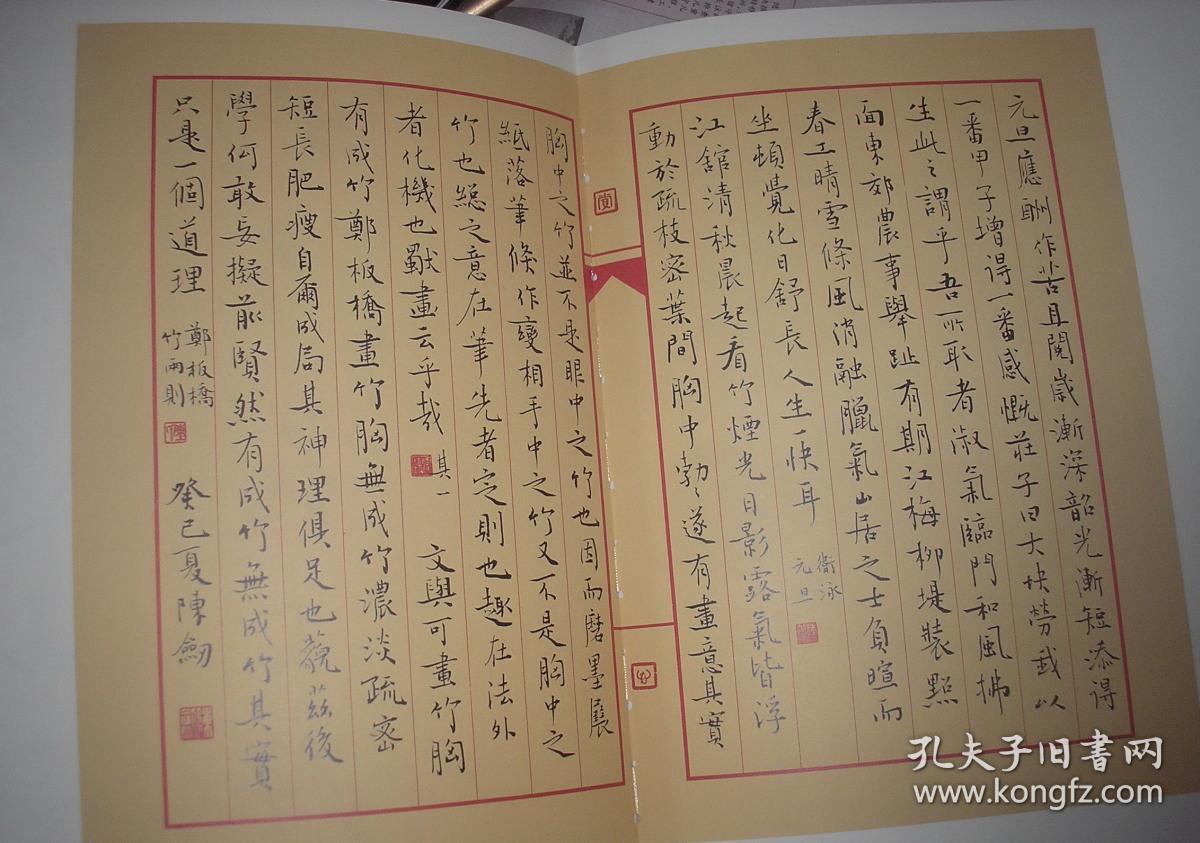 元旦應酬作苦且閱歲漸深韶光漸短添得
一番甲子增得一番感慨莊子曰大块勞我以
生此之謂乎吾所取者淑氣臨門和風拂
面東郊農事舉趾有期江梅柳堤裝點
春工晴雪條風消融臘氣山居之士負暄而
坐頓覺化日舒長人生一快耳
衛泳
元旦
江舘清秋晨起看竹煙光日影露氣皆浮
動於疏枝密葉間胸中勃〻遂有畫意其實
胸中之竹並不是眼中之竹也因而磨墨展
紙落筆倏作變相手中之竹又不是胸中之
竹也總之意在筆先者定則也趣在法外
者化機也獸畫云乎哉
其一
文與可畫竹胸
有成竹鄭板橋畫竹胸無成竹濃淡疏密
短長肥瘦自爾成局其神理俱足也藐茲後
學何敢妄擬前賢然有成竹無成竹其實
只是一個道理
鄭板橋
竹兩則
癸巳夏陳劒
孔夫子旧书网
www.kongfz.com